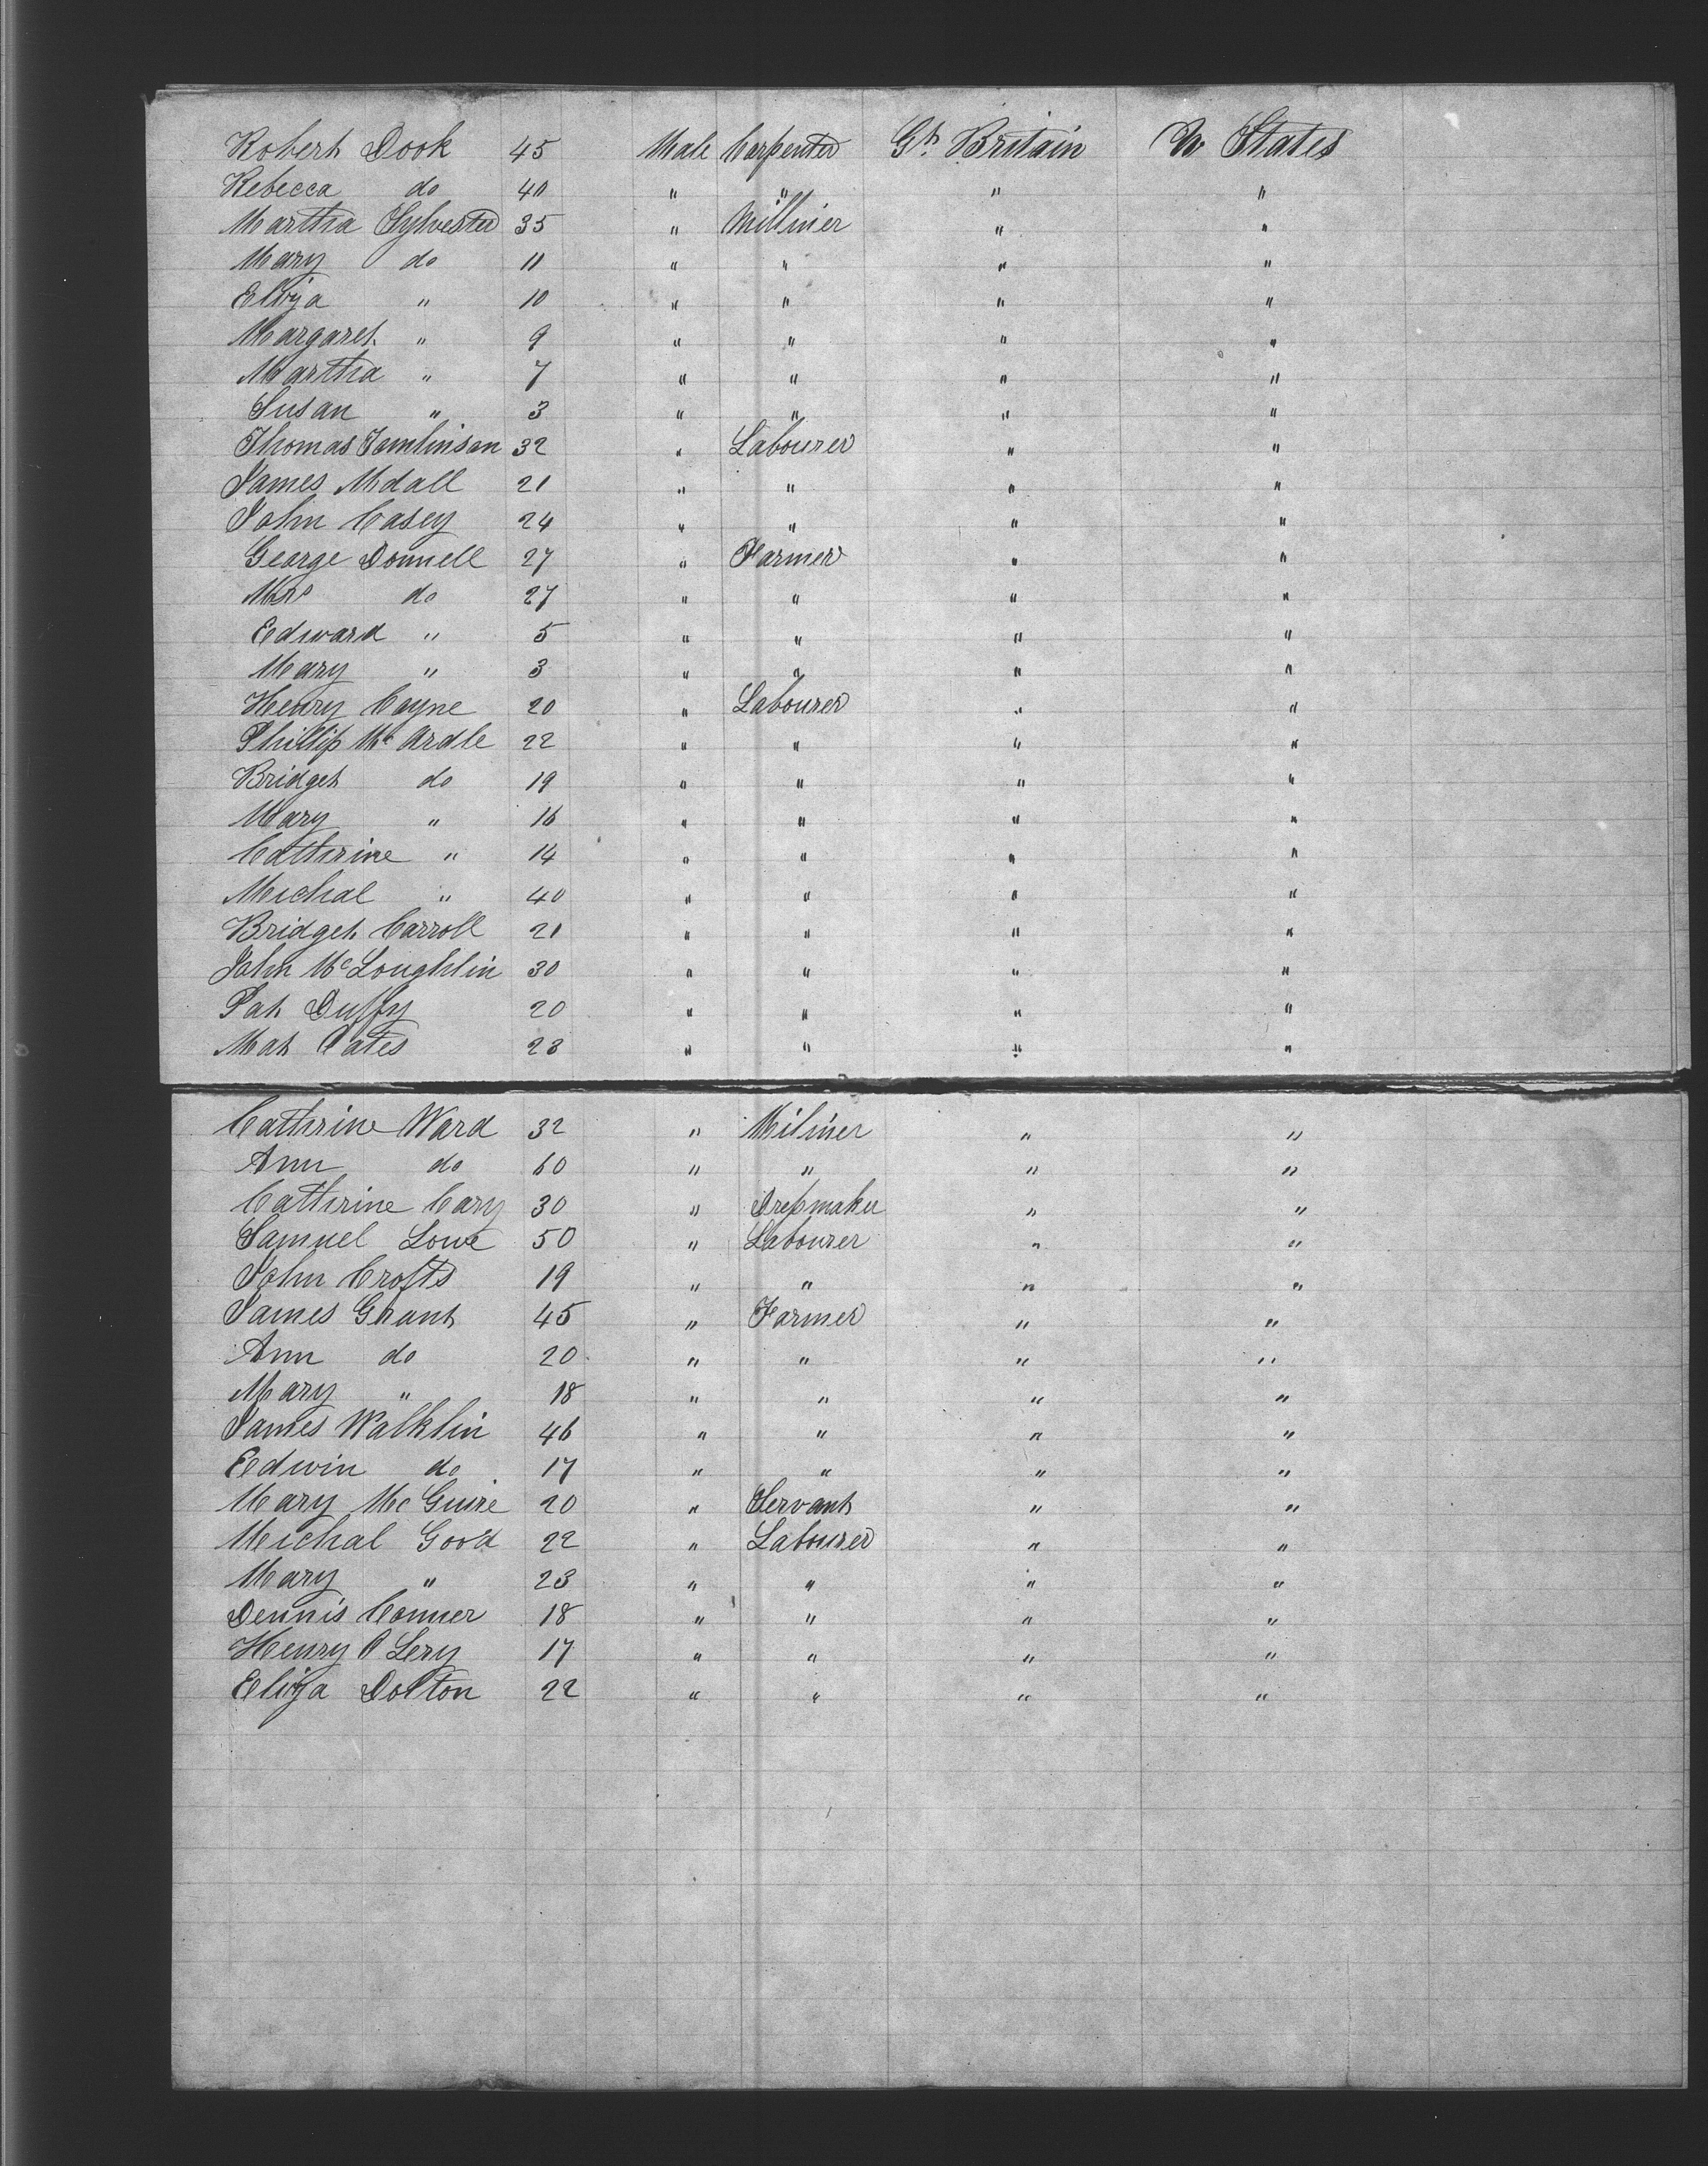 Robert Dook 45 Male Carpenter Gt. Britain U States
Rebecca do 40 " " " "
Martha Sylvester 35 " Milliner " "
Mary do 11 " " " "
Eliza " 10 " " " "
Margaret " 9 " " " "
Martha " 7 " " " "
Susan " 3 " " " "
Thomas Tomlinson 32 " Labourer " "
James Mdall 21 " " " "
John Casey 24 " " " "
George Donnell 27 " Farmer " "
Mrs do 27 " " " "
Edward " 5 " " " "
Mary " 3 " " " "
Henry Coyne 20 " Labourer " "
Phillip Mc Ardle 22 " " " "
Bridget do 19 " " " "
Mary " 16 " " " "
Cathrine " 14 " " " "
Michal " 40 " " " "
Bridget Carroll 21 " " " "
John McLoughlin 30 " " " "
Pat Duffy 20 " " " "
Mat Cates 23 " " " "
Cathrine Ward 32 " Miliner " "
Ann do 60 " " " "
Cathrine Cary 30 " Dressmaker " "
Samuel Lowe 50 " Labourer " "
John Crofts 19 " " " "
James Grant 45 " Farmer " "
Ann do 20 " " " "
Mary " 18 " " " "
James Walklin 46 " " " "
Edwin do 17 " " " "
Mary Mc Guire 20 " Servant " "
Michal Good 22 " Labourer " "
Mary " 23 " " " "
Dennis Conner 18 " " " "
Henry O Lery 17 " " " "
Eliza Dolton 22 " " " "